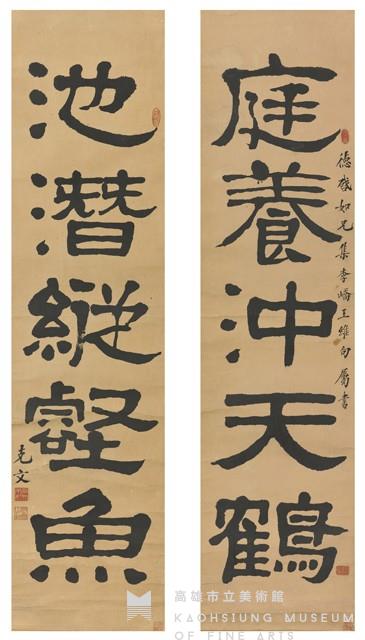 庭養沖天鶴
德 如兄集李嶠王維句屬書
池潛縱壑魚
克文
高雄市立美術館
KAOHSIUNG MUSEUM
OF FINE ARTS